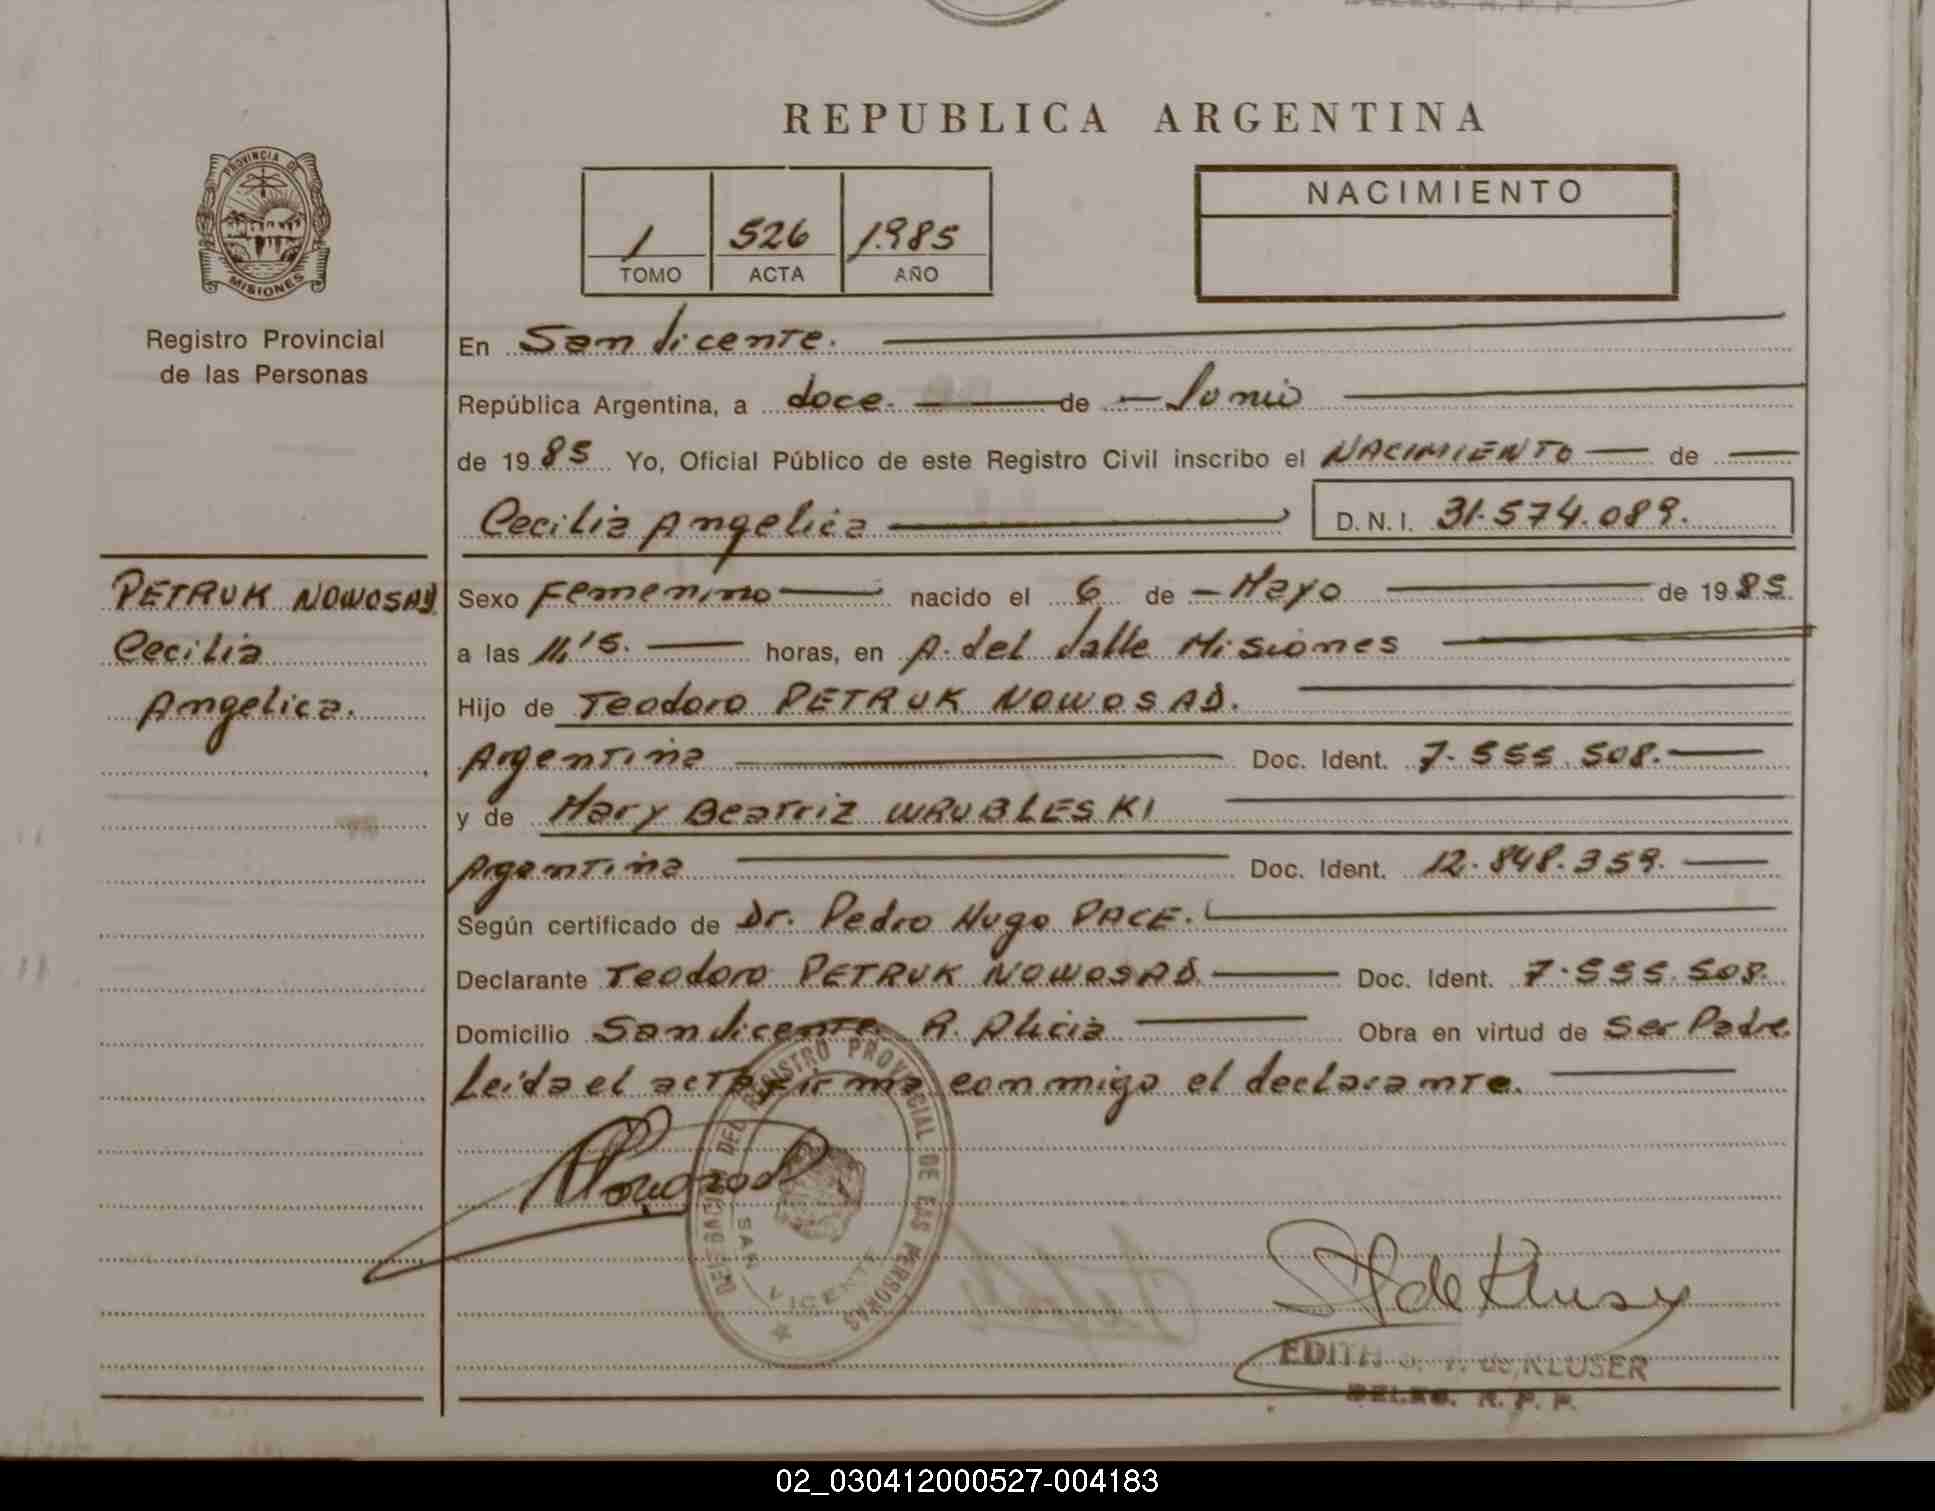 DELEG. R. P. P.
REPUBLICA ARGENTINA
PROVINCIA DE
MISIONES
Registro Provincial
de las Personas
1 526 1.985
TOMO ACTA AÑO
NACIMIENTO
En San Vicente.
República Argentina, a doce. de Junio
de 1985 Yo, Oficial Público de este Registro Civil inscribo el NACIMIENTO de
Cecilia Angelica D.N.I. 31.574.089.
PETRUK NOWOSAD
Cecilia
Angelica.
Sexo Femenino nacido el 6 de Mayo de 1985.
a las 11,15. horas, en A. del Valle Misiones
Hijo de Teodoro PETRUK NOWOSAD.
Argentina Doc. Ident. 7.555.508.
y de Mary Beatriz WRUBLESKI
Argentina Doc. Ident. 12.848.359.
Según certificado de Dr. Pedro Hugo PACE.
Declarante Teodoro PETRUK NOWOSAD. Doc. Ident. 7.555.508.
Domicilio San Vicente. R. Alicia Obra en virtud de Ser Padre
Leida el acta firma conmigo el declarante.
DELEGACION DEL REGISTRO PROVINCIAL DE LAS PERSONAS
SAN VICENTE
de Kluser
EDITH de KLUSER
DELEG. R. P. P.
02_030412000527-004183